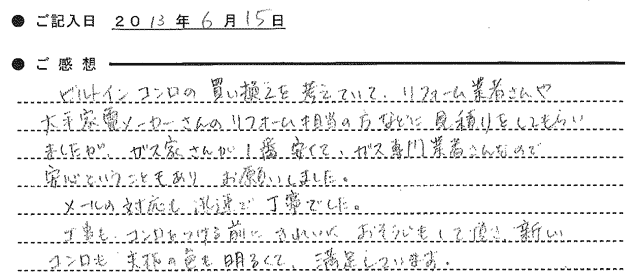 ● ご記入日 2013年6月15日
● ご感想
ビルトインコンロの買い換えを考えていて、リフォーム業者さんや
大手家電メーカーさんのリフォーム担当の方などに見積りをしてもらい
ましたが、ガス家さんが1番安くて、ガス専門業者さんなので
安心ということもあり お願いしました。
メールの対応も 迅速で 丁寧でした。
工事も、コンロをつける前に きれいに おそうじもして頂き、新しい
コンロも 天板の色も 明るくて、満足しています。